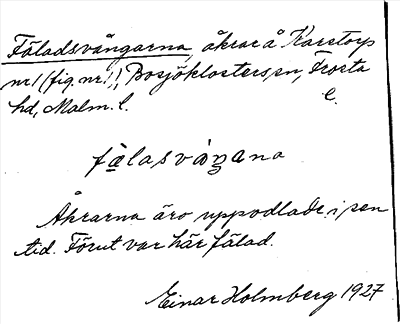 Fäladsvångarna, åkrar å Karstorp
nr 1 (fig. nr 1), Bosjöklosters sn, Frosta
hd, Malm. l. l.
fälasvåŋana
Åkrarna äro uppodlade i sen
tid. Förut var här fälad.
Einar Holmberg 1927